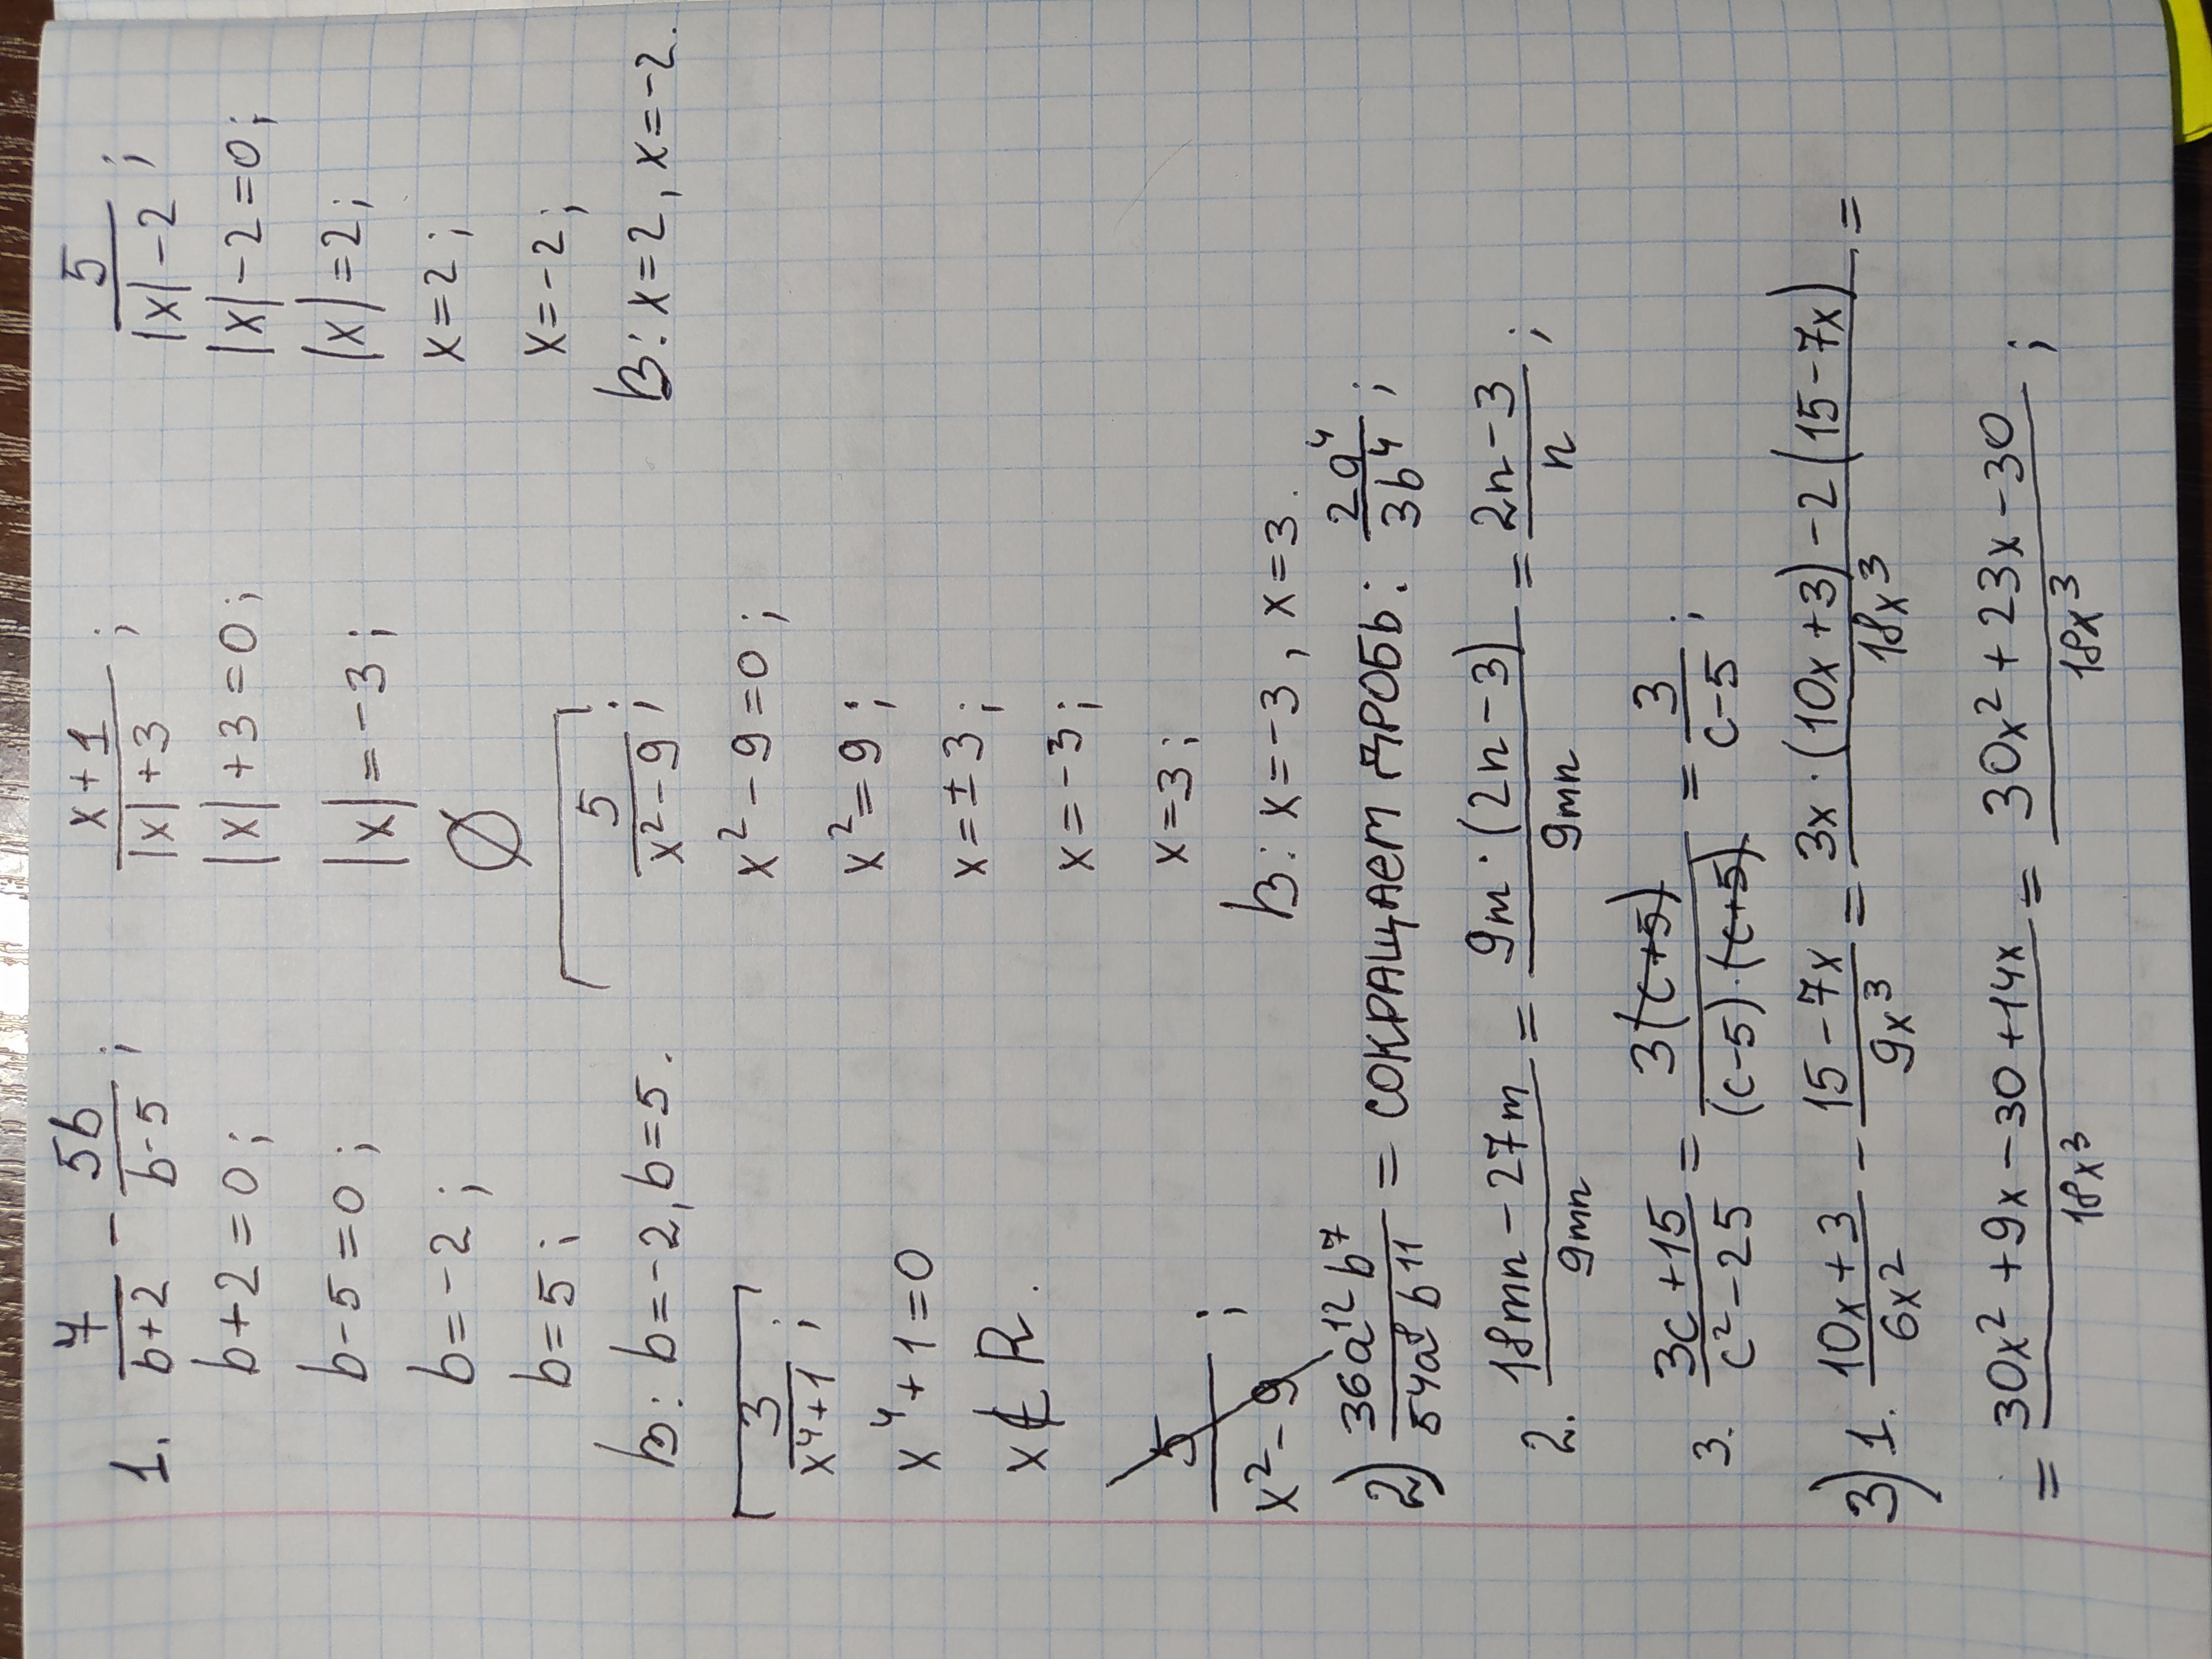 1. 4/(b+2) - 5b/(b-5) ;
b+2=0;
b-5=0;
b=-2;
b=5;
В: b=-2, b=5.
3/(x⁴+1) ;
x⁴+1=0
x∉R.
5/(x²-9) ;
(x+1)/(|x|+3) ;
|x|+3=0;
|x|=-3;
∅
5/(x²-9) ;
x²-9=0;
x²=9;
x=±3;
x=-3;
x=3;
В: x=-3, x=3.
5/(|x|-2) ;
|x|-2=0;
|x|=2;
x=2;
x=-2;
В: x=2, x=-2.
2) 36a¹²b⁷/(54a⁸b¹¹) = СОКРАЩАЕМ ДРОБЬ: 2a⁴/(3b⁴) ;
2. (18mn-27m)/(9mn) = (9m·(2n-3))/(9mn) = (2n-3)/n ;
3. (3c+15)/(c²-25) = 3(c+5)/((c-5)·(c+5)) = 3/(c-5) ;
3) 1. (10x+3)/(6x²) - (15-7x)/(9x³) = (3x·(10x+3)-2(15-7x))/(18x³) =
= (30x²+9x-30+14x)/(18x³) = (30x²+23x-30)/(18x³) ;